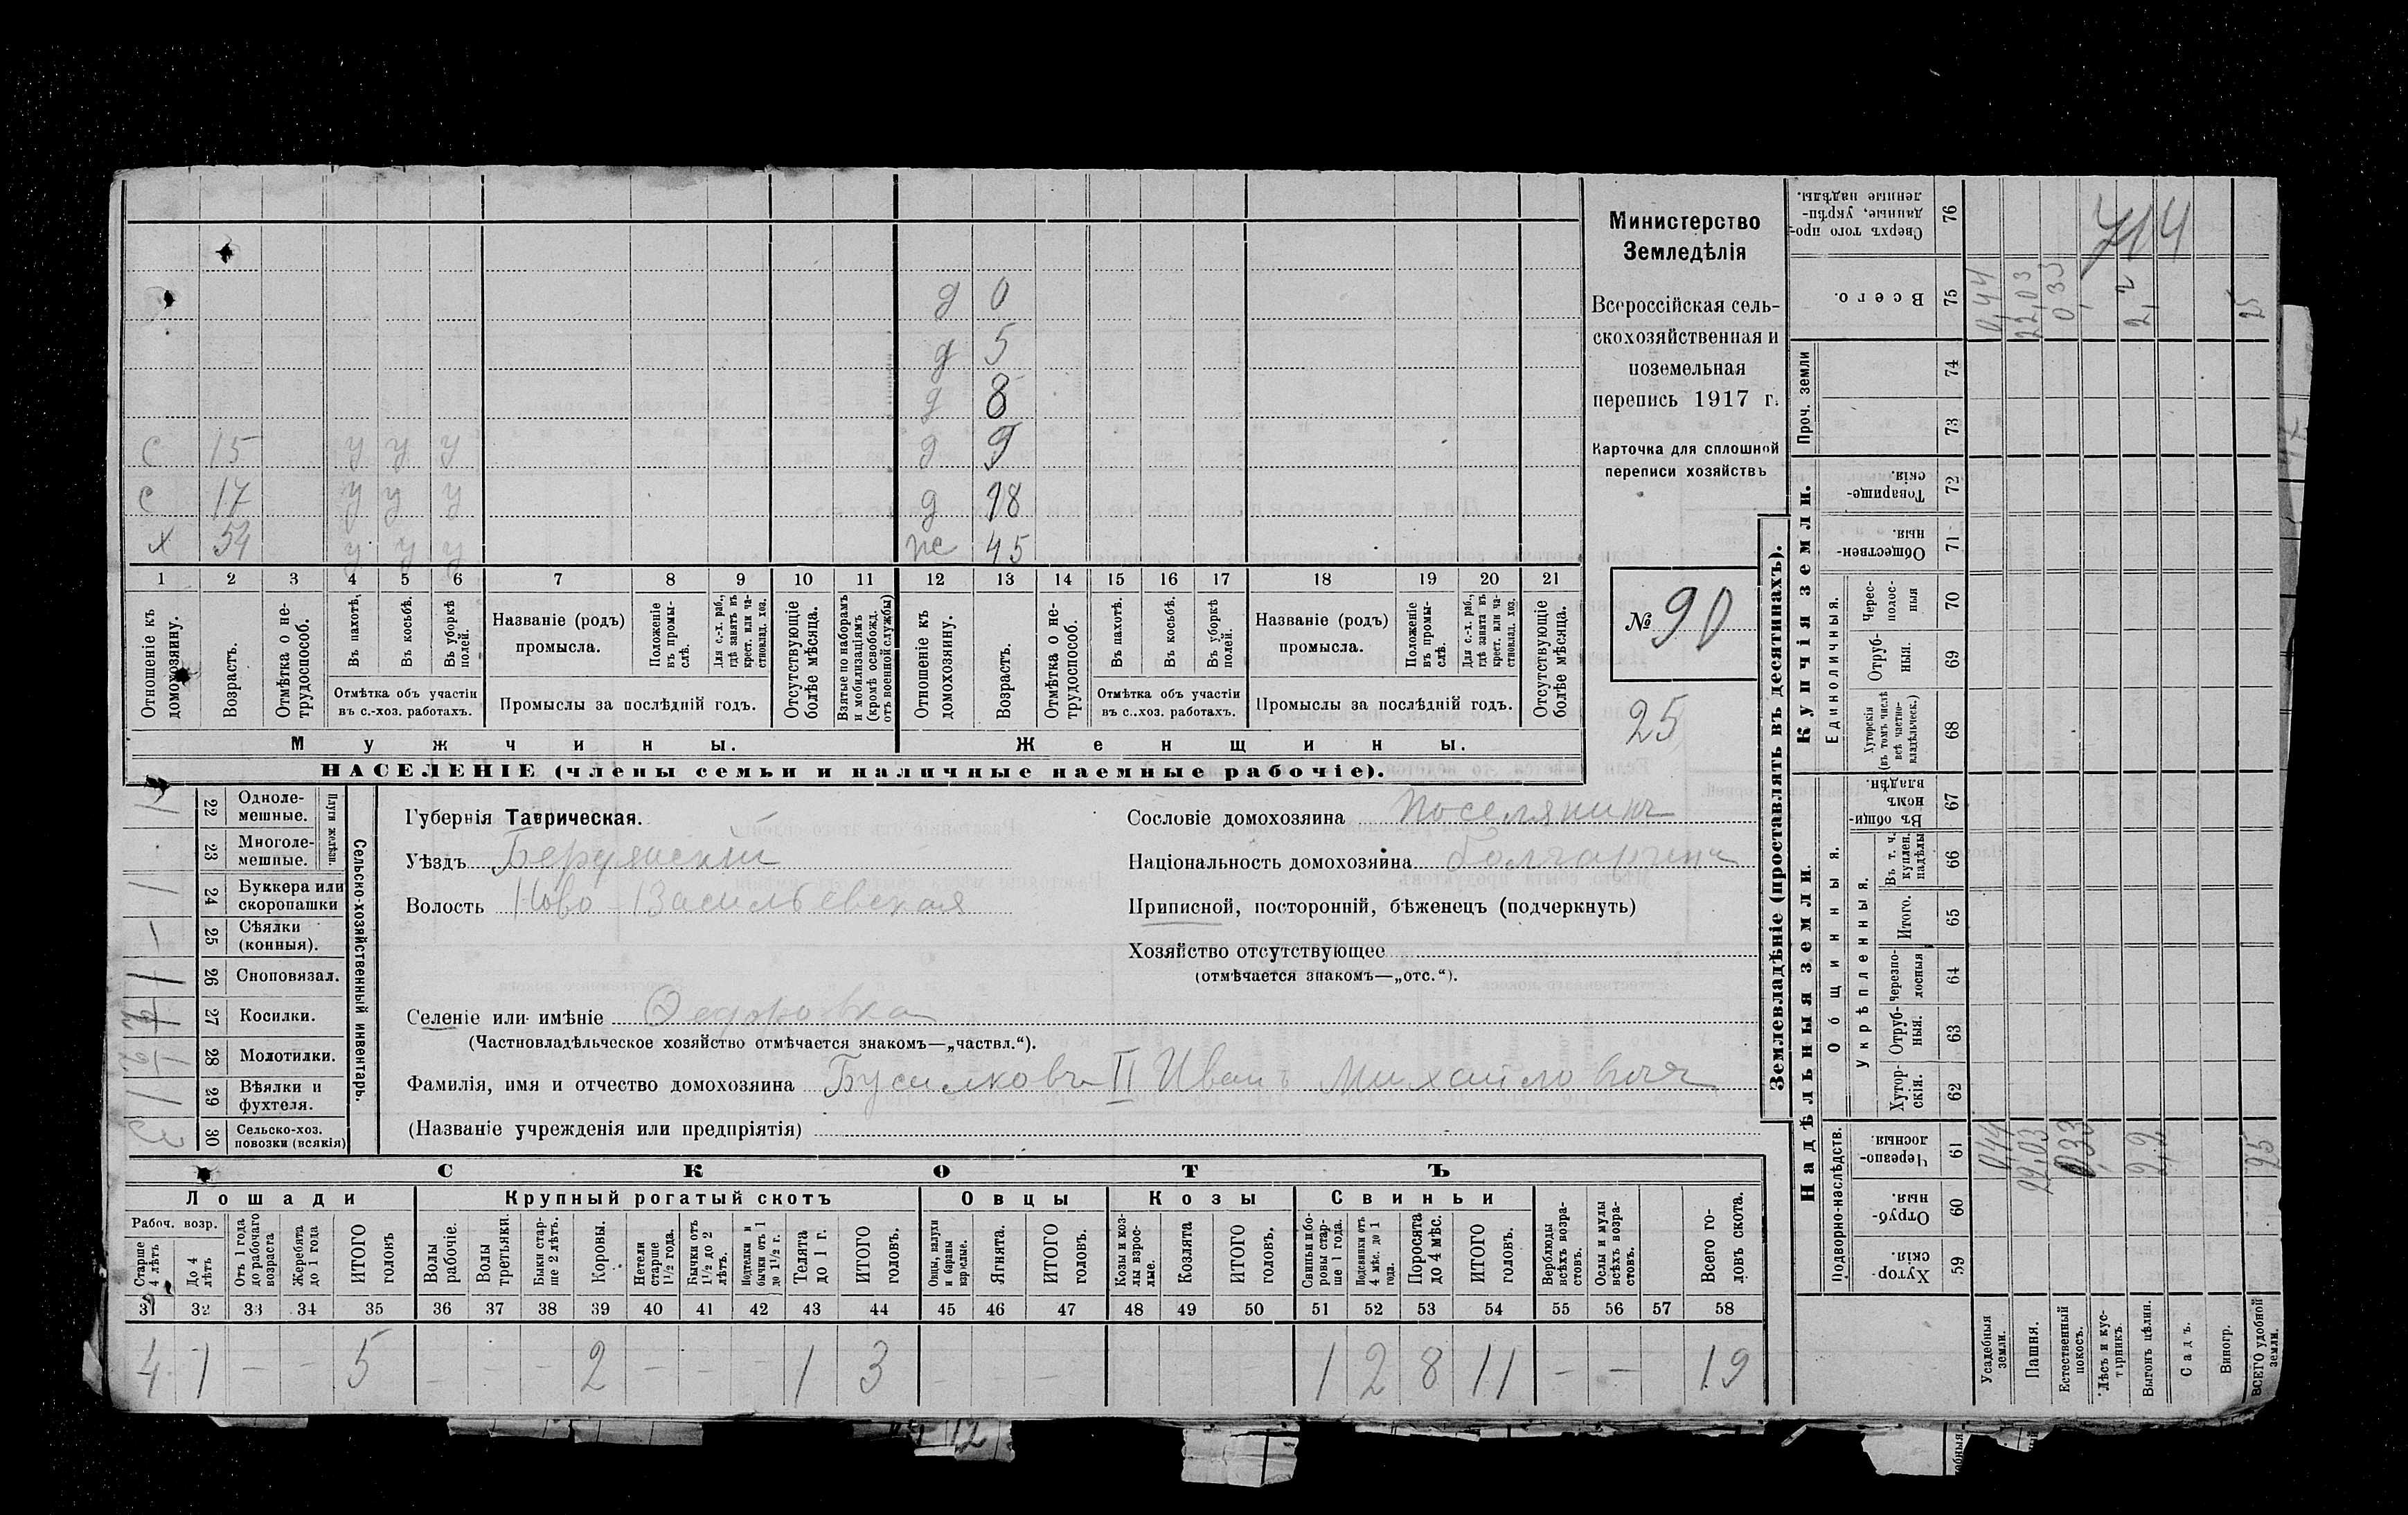 Министерство
Земледѣлія
Всероссійская сель-
скохозяйственная и
поземельная
перепись 1917 г.
Карточка для сплошной
переписи хозяйствъ
№ 90
25
д 0
д 5
д 8
с 15 у у у д 9
с 17 у у у д 18
х 54 у у у ж 45
1 2 3 4 5 6 7 8 9 10 11 12 13 14 15 16 17 18 19 20 21
Отношеніе къ домохозяину.
Возрастъ.
Отмѣтка о не-трудоспособ.
Въ пахотѣ.
Въ косьбѣ.
Въ уборкѣ полей.
Отмѣтка объ участіи
въ с.-хоз. работахъ.
Названіе (родъ)
промысла.
Положеніе въ промы-слѣ.
Для с.-х. раб., гдѣ занятъ въ крест. или ча-стновлад. хоз.
Промыслы за послѣдній годъ.
Отсутствующіе болѣе мѣсяца.
Взятые по наборамъ и мобилизаціямъ (кромѣ освобожд. отъ военной службы)
Отношеніе къ домохозяину.
Возрастъ.
Отмѣтка о не-трудоспособ.
Въ пахотѣ.
Въ косьбѣ.
Въ уборкѣ полей.
Отмѣтка объ участіи
въ с..хоз. работахъ.
Названіе (родъ)
промысла.
Положеніе въ промы-слѣ.
Для с.-х. раб., гдѣ занята въ крест. или ча-стновлад. хоз.
Промыслы за послѣдній годъ.
Отсутствующіе болѣе мѣсяца.
Мужчины. Женщины.
НАСЕЛЕНІЕ (члены семьи и наличные наемные рабочіе).
Сельско-хозяйственный инвентарь.
Плуги желѣзн.
22 Одноле-мешные. 1
23 Многоле-мешные.
24 Буккера или скоропашки 1
25 Сѣялки (конныя). –
26 Сноповязал.
27 Косилки.
28 Молотилки.
29 Вѣялки и фухтеля. 1
30 Сельско-хоз. повозки (всякія) 3
Губернія Таврическая.
Уѣздъ Бердянскій
Волость Ново-Васильевская
Селеніе или имѣніе Федоровка
(Частновладѣльческое хозяйство отмѣчается знакомъ—„частвл.“).
Фамилія, имя и отчество домохозяина Бусилковъ II Иванъ Михайловичъ
(Названіе учрежденія или предпріятія)
Сословіе домохозяина поселянинъ
Національность домохозяина болгаринъ
Приписной, посторонній, бѣженецъ (подчеркнуть)
Хозяйство отсутствующее
(отмѣчается знакомъ—„отс.“).
СКОТЪ
Лошади Крупный рогатый скотъ Овцы Козы Свиньи
Рабоч. возр.
Старше 4 лѣтъ
До 4 лѣтъ
Отъ 1 года до рабочаго возраста
Жеребята до 1 года
ИТОГО головъ
Волы рабочіе.
Волы третьяки.
Быки стар-ше 2 лѣтъ.
Коровы.
Нетели старше 1½ года.
Бычки отъ 1½ до 2 лѣтъ.
Подтелки и бычки отъ 1 до 1½ г.
Телята до 1 г.
ИТОГО головъ.
Овцы, валухи и бараны взрослые.
Ягнята.
ИТОГО головъ.
Козы и коз-лы взрос-лые.
Козлята
ИТОГО головъ.
Свиньи и бо-ровы стар-ше 1 года.
Подсвинки отъ 4 мѣс. до 1 года.
Поросята до 4 мѣс.
ИТОГО головъ.
Верблюды всѣхъ возра-стовъ.
Ослы и мулы всѣхъ возра-стовъ.
Всего го-ловъ скота.
31 32 33 34 35 36 37 38 39 40 41 42 43 44 45 46 47 48 49 50 51 52 53 54 55 56 57 58
4 1 – – 5 – – – 2 – – – 1 3 – – – 1 2 8 11 – – 19
Землевладѣніе (проставлять въ десятинахъ).
Надѣльныя земли. Купчія земли.
Подворно-наслѣдств.
Общинныя.
Укрѣпленныя.
Единоличныя.
Проч. земли
Хутор-скія. 59
Отруб-ныя. 60
Черезпо-лосныя. 61
Хутор-скія. 62
Отруб-ныя. 63
Черезпо-лосныя 64
Итого. 65
Въ т. ч. куплен. надѣлы 66
Въ общи-номъ владѣн. 67
Хуторскія (въ томъ числѣ всѣ частно-владѣльческ.) 68
Отруб-ныя. 69
Черес-полос-ныя 70
Обществен-ныя. 71
Товарище-скія. 72
73
74
Всего. 75
Сверхъ того про-данные, укрѣп-ленные надѣлы. 76
Усадебныя земли. 0,44 0,44
Пашня. 22,03 22,03
Естественный покосъ. 0,33 0,33
Лѣсъ и кус-тарникъ.
Выгонъ цѣлин. 2,2 2,2
Садъ.
Виногр.
ВСЕГО удобной земли. 25 25
714
12